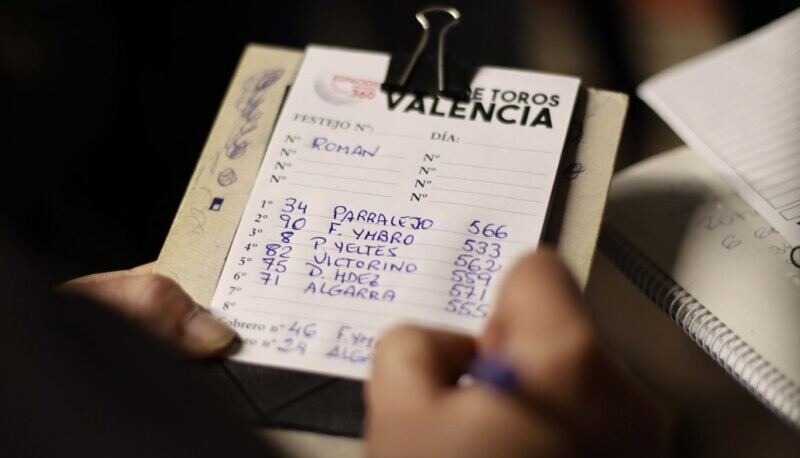 ESPACIOS
360
DE TOROS
VALENCIA
FESTEJO Nº: DÍA:
Nº ROMAN Nº
Nº Nº
Nº Nº
Nº
1º 34 PARRALEJO 566
2º 90 F. YMBRO 533
3º 8 P. YELTES 562
4º 82 VICTORINO 559
5º 75 D. HDEZ 571
6º 71 ALGARRA 555
7º
8º
obrero nº 46 F. YM
ro nº 24 ALGA